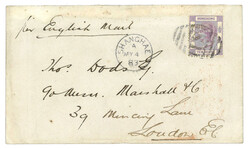 per English Mail
SHANGHAE
A
MY 4
83
Thos. Dods Esq.
c/o Messrs. Marshall & Co
39 Mincing Lane
London E.C.